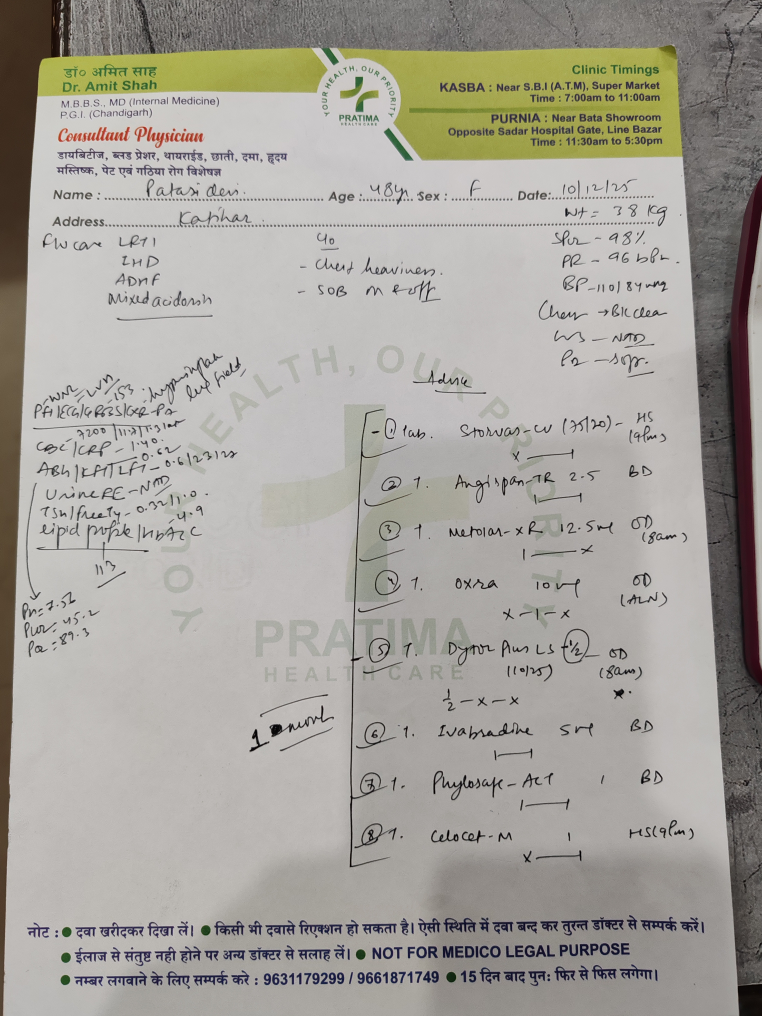 डॉ० अमित साह
Dr. Amit Shah
M.B.B.S., MD (Internal Medicine)
P.G.I. (Chandigarh)
Consultant Physician
डायबिटीज, ब्लड प्रेशर, थायराईड, छाती, दमा, हृदय
मस्तिष्क, पेट एवं गठिया रोग विशेषज्ञ
YOUR HEALTH, OUR PRIORITY
PRATIMA
HEALTH CARE
Clinic Timings
KASBA : Near S.B.I (A.T.M), Super Market
Time : 7:00am to 11:00am
PURNIA : Near Bata Showroom
Opposite Sadar Hospital Gate, Line Bazar
Time : 11:30am to 5:30pm
Name : Patasi devi Age : 48yr Sex : F Date: 10/12/25
Address Katihar
Wt = 38 kg
LRTI
IHD
ADHF
Mixed acidosis
C/O
- Chest heaviness
- SOB
SPO2 - 98%
PR - 96 bpm
BP - 110/84
Chest → B/L clear
- NAD
PA - Soft
Advice
CBC/CRP - 1.40
ABG/KFT/LFT - 0.6/23/22
Urine RE - NAD
TSH/freeT4 - 0.32/1.0
4.9
Lipid profile/HbA1C
113
PCO2 = 45.2
PO2 = 89.3
① Tab. Storvas-CV (75/20) - HS (9pm)
x
② T. Angispan-TR 2.5 BD
③ T. Metolar-XR 12.5 mg OD (8am)
x
④ T. Oxra 10 mg OD
x - 1 - x
⑤ T. Dytor Plus LS - 1/2 - OD (8am)
1/2 - x - x
1 month
⑥ T. Ivabradine 5 mg BD
⑦ T. Phylosafe - ACT 1 BD
⑧ T. Celocet-M 1 HS (9pm)
x
YOUR HEALTH, OUR PRIORITY
PRATIMA
HEALTH CARE
नोट : ● दवा खरीदकर दिखा लें। ● किसी भी दवासे रिएक्शन हो सकता है। ऐसी स्थिति में दवा बन्द कर तुरन्त डॉक्टर से सम्पर्क करें।
● ईलाज से संतुष्ट नही होने पर अन्य डॉक्टर से सलाह लें। ● NOT FOR MEDICO LEGAL PURPOSE
● नम्बर लगवाने के लिए सम्पर्क करे : 9631179299 / 9661871749 ● 15 दिन बाद पुन: फिर से फिस लगेगा।